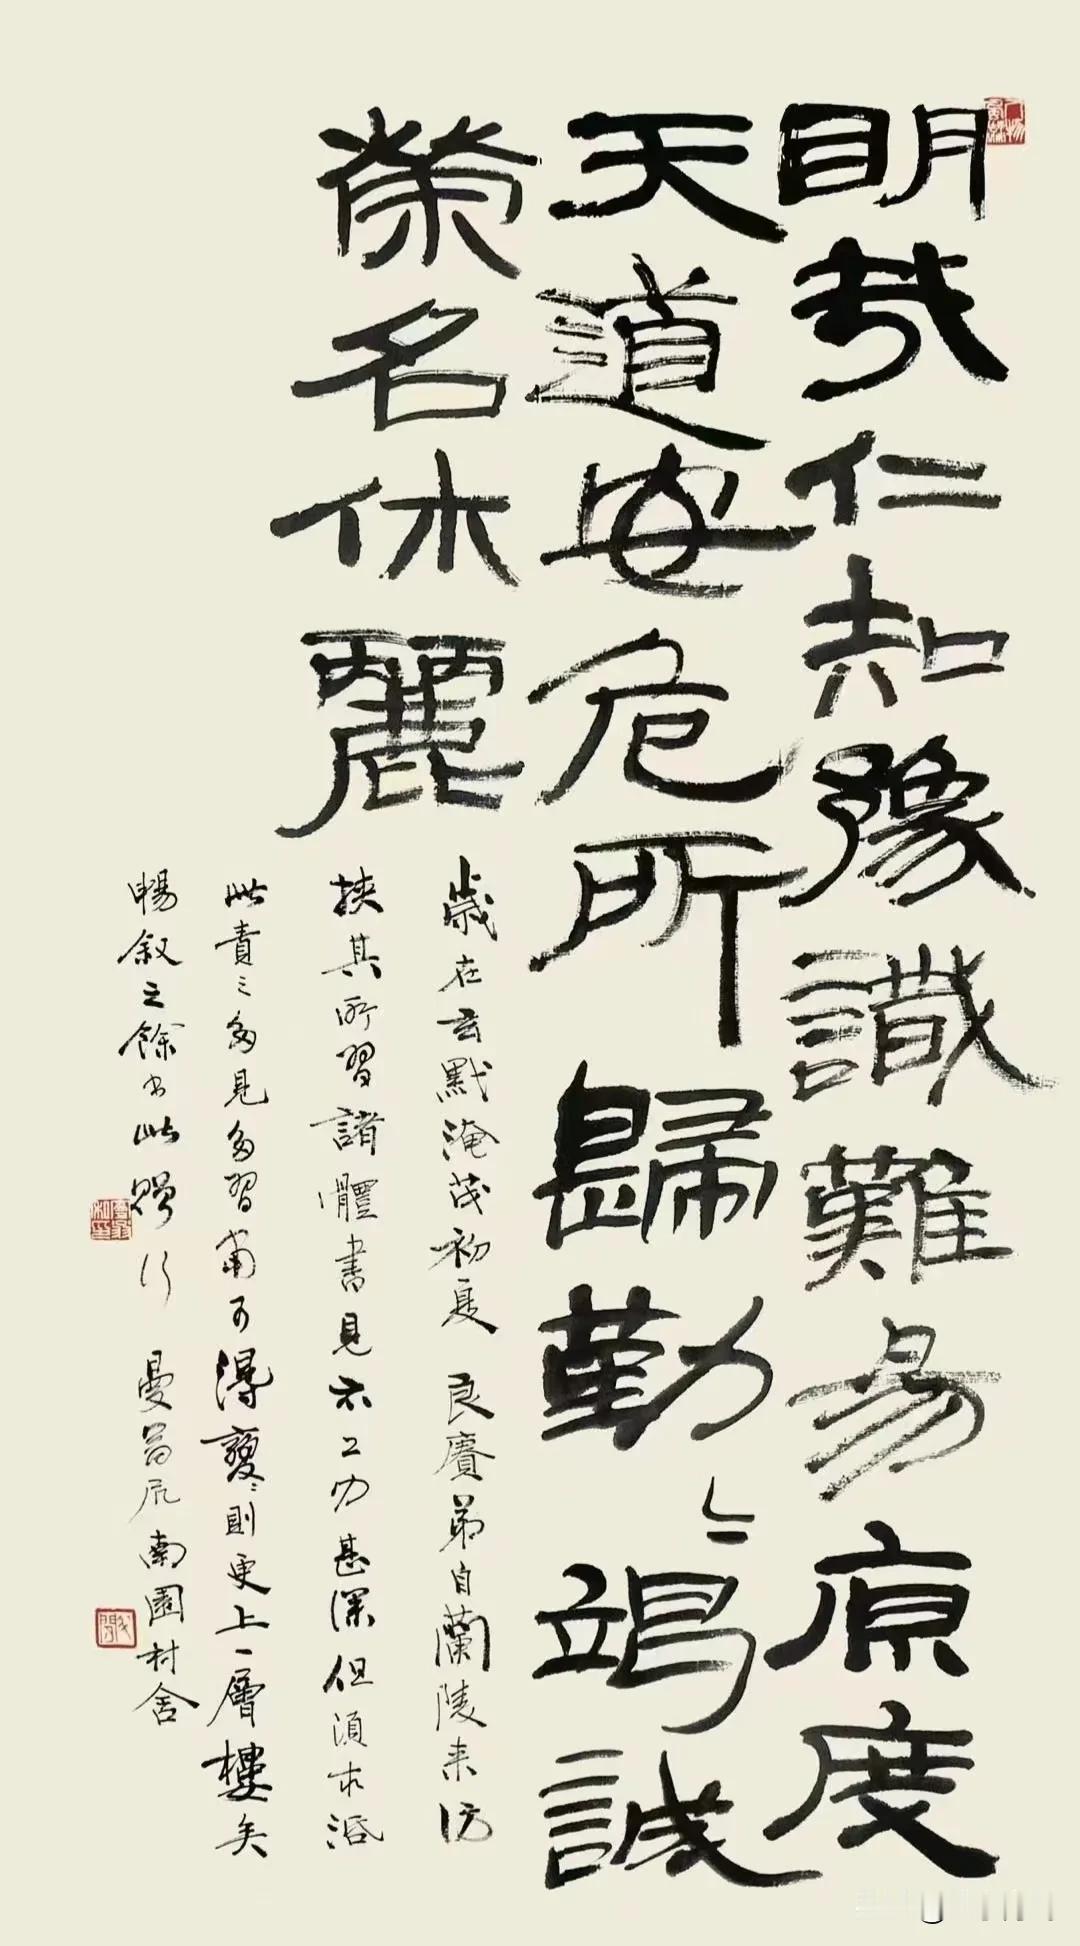 明哉仁知豫識難易原度
天道安危所歸勤〻竭誠
榮名休麗
歲在玄黓淹茂初夏 良賡弟自蘭陵来訪
挾其所習諸體書見示工力甚深但須求
此責之多見多習甫可得變〻則更上一層樓矣
暢叙之餘書此贈行 曼翁 南園村舍